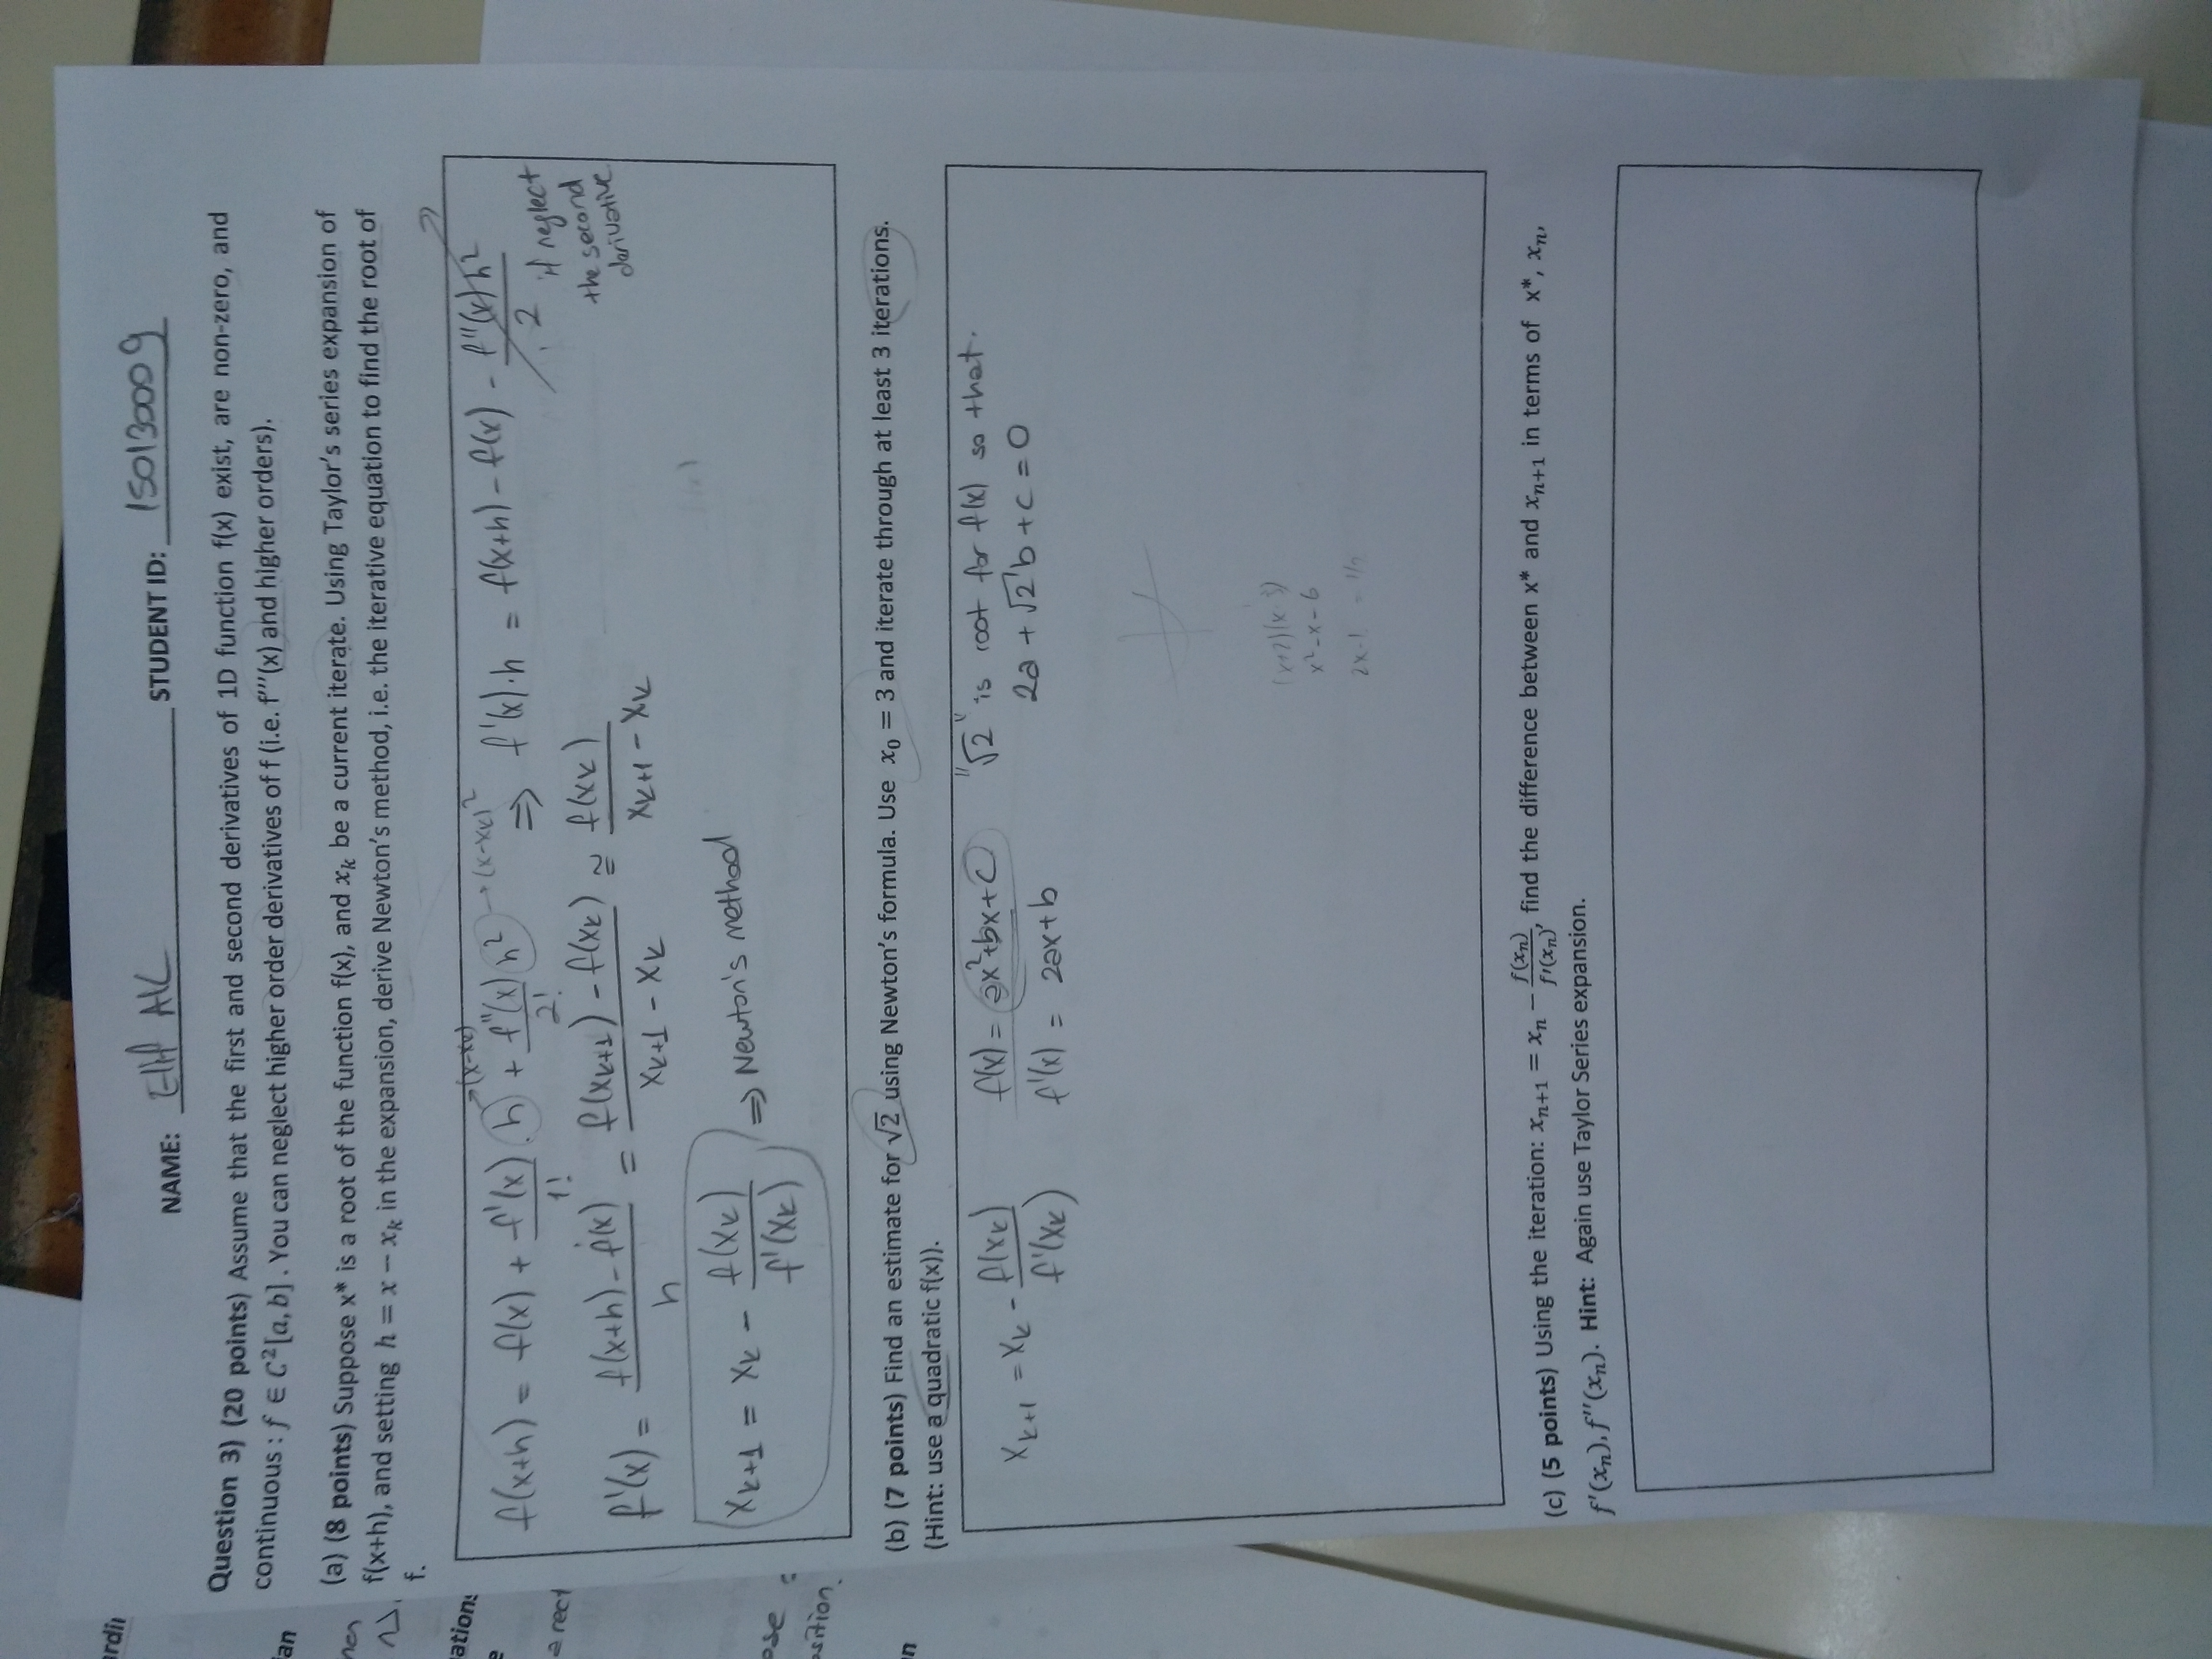 ardin
an
ations
e
a rect
ose
osition.
n
NAME: Elif AK STUDENT ID: 150130009
Question 3) (20 points) Assume that the first and second derivatives of 1D function f(x) exist, are non-zero, and
continuous : f ∈ C²[a, b] . You can neglect higher order derivatives of f (i.e. f'''(x) and higher orders).
(a) (8 points) Suppose x* is a root of the function f(x), and xₖ be a current iterate. Using Taylor's series expansion of
f(x+h), and setting h = x − xₖ in the expansion, derive Newton's method, i.e. the iterative equation to find the root of
f.
f(x+h) = f(x) + f'(x)/1! . h →(x-xₖ) + f''(x)/2! h² →(x-xₖ)² ⇒ f'(x).h = f(x+h) - f(x) - f''(x)h²/2
if neglect
the second
derivative
f'(x) = (f(x+h) - f(x))/h = (f(xₖ₊₁) - f(xₖ))/(xₖ₊₁ - xₖ) ≅ f(xₖ)/(xₖ₊₁ - xₖ)
xₖ₊₁ = xₖ - f(xₖ)/f'(xₖ) ⇒ Newton's method
(b) (7 points) Find an estimate for √2 using Newton's formula. Use x₀ = 3 and iterate through at least 3 iterations.
(Hint: use a quadratic f(x)).
xₖ₊₁ = xₖ - f(xₖ)/f'(xₖ) f(x) = ax²+bx+c "√2" is root for f(x) so that.
f'(x) = 2ax+b 2a + √2 b + c = 0
x²-x-6
2x-1
(c) (5 points) Using the iteration: xₙ₊₁ = xₙ − f(xₙ)/f'(xₙ), find the difference between x* and xₙ₊₁ in terms of x*, xₙ,
f'(xₙ), f''(xₙ). Hint: Again use Taylor Series expansion.